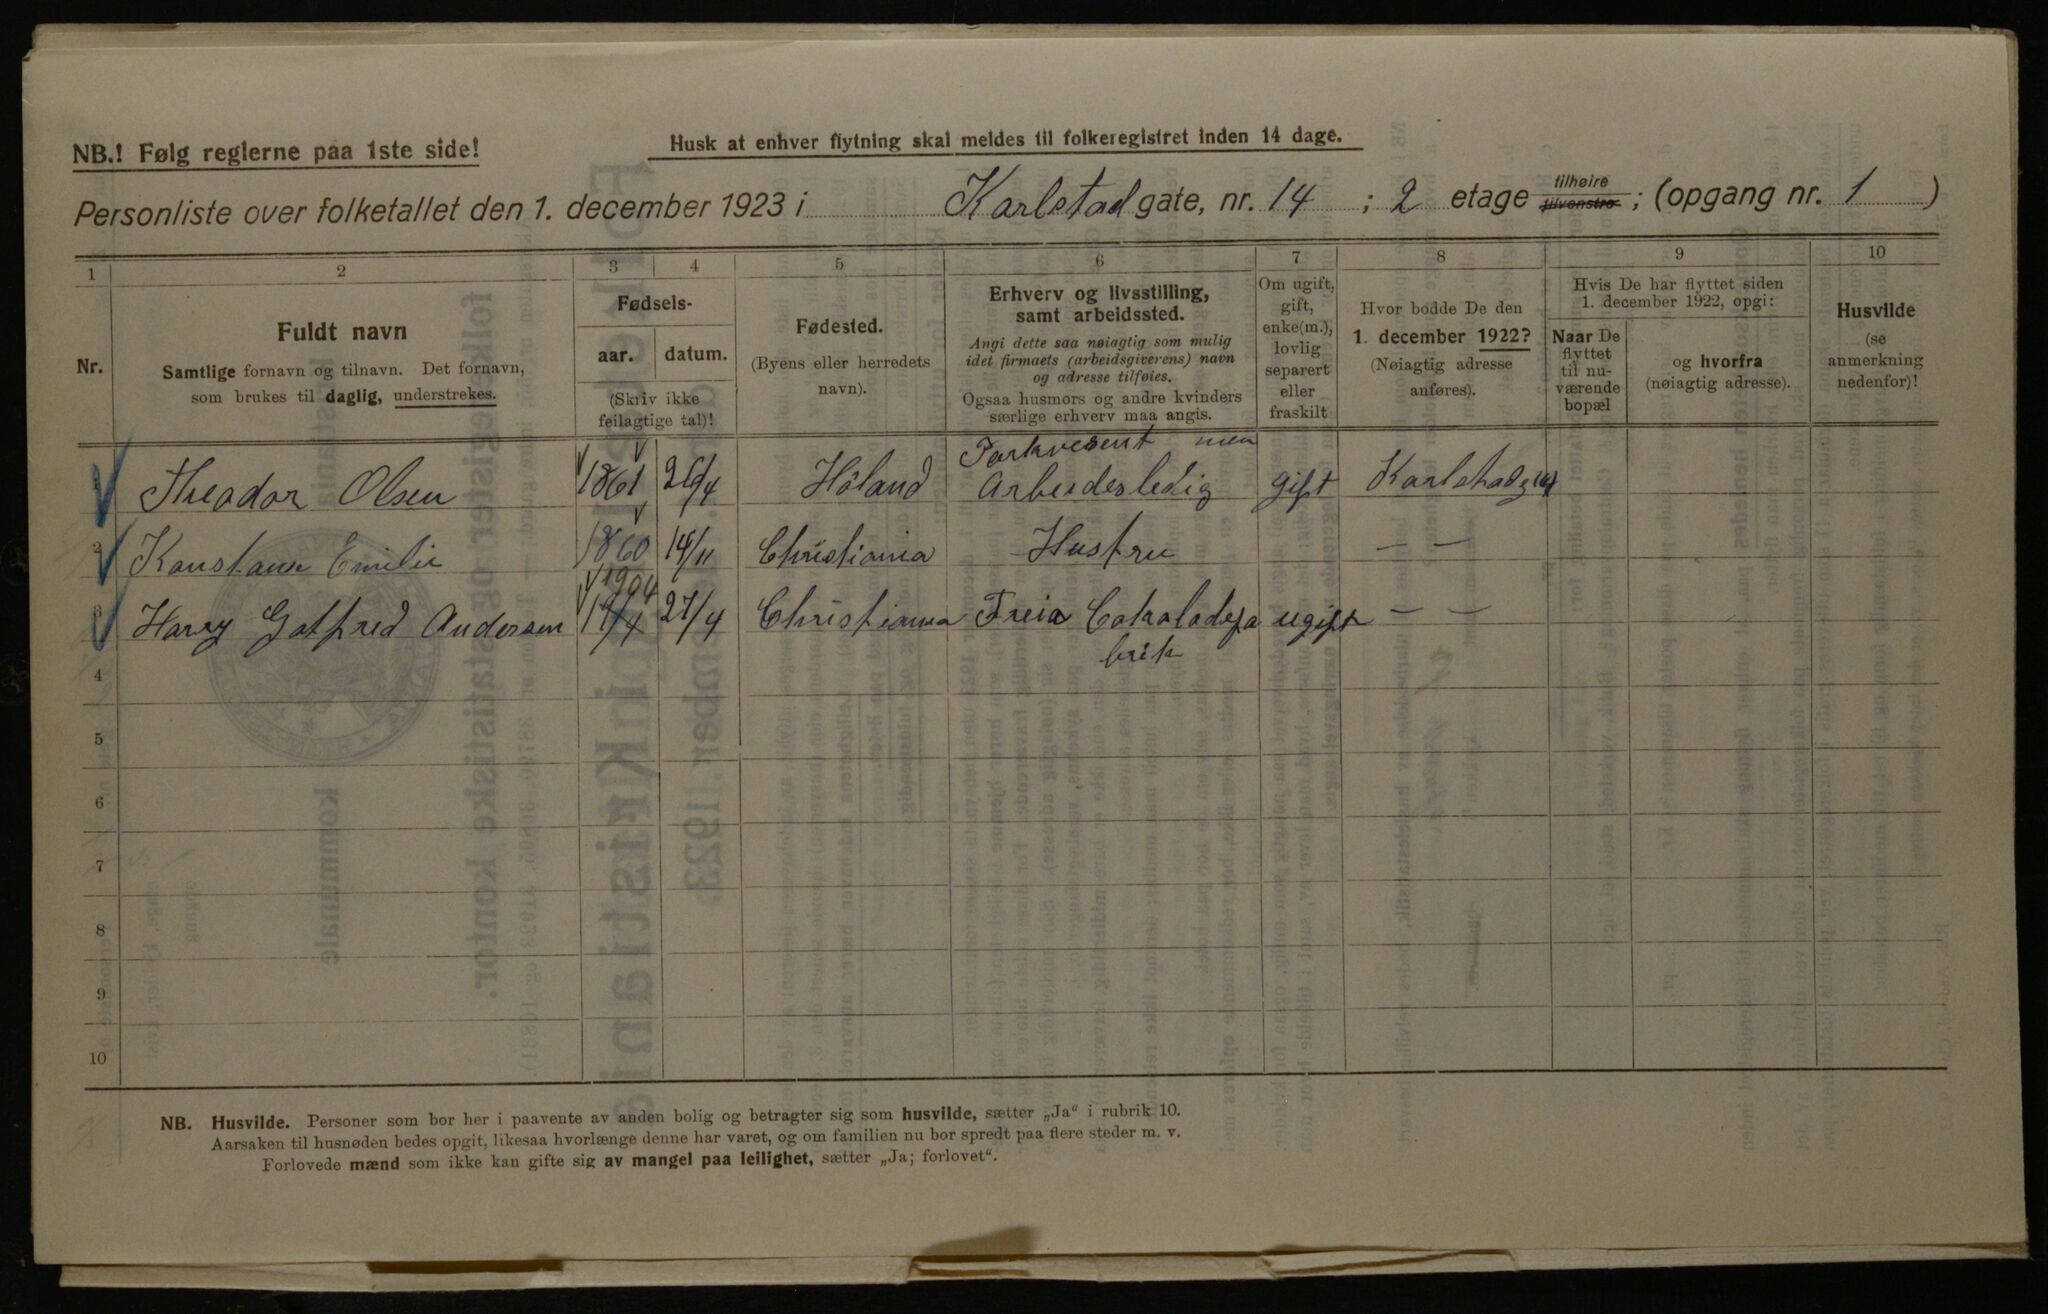 NB.! Følg reglerne paa 1ste side!
Husk at enhver flytning skal meldes til folkeregistret inden 14 dage.
Personliste over folketallet den 1. december 1923 i Karlstad gate, nr. 14 ; 2 etage tilhøire tilvenstre ; (opgang nr. 1 )
1 2 3 4 5 6 7 8 9 10
Nr.
Fuldt navn
Samtlige fornavn og tilnavn. Det fornavn,
som brukes til daglig, understrekes.
Fødsels-
aar. datum.
(Skriv ikke
feilagtige tal)!
Fødested.
(Byens eller herredets
navn).
Erhverv og livsstilling,
samt arbeidssted.
Angi dette saa nøiagtig som mulig
idet firmaets (arbeidsgiverens) navn
og adresse tilføies.
Ogsaa husmors og andre kvinders
særlige erhverv maa angis.
Om ugift,
gift,
enke(m.),
lovlig
separert
eller
fraskilt
Hvor bodde De den
1. december 1922?
(Nøiagtig adresse
anføres).
Hvis De har flyttet siden
1. december 1922, opgi:
Naar De
flyttet
til nu-
værende
bopæl
og hvorfra
(nøiagtig adresse).
Husvilde
(se
anmerkning
nedenfor)!
1 Theodor Olsen 1861 26/4 Höland Arbeidesledig gift
2 Emilie 1860 14/11 Christiania Hustru — —
1904
3 Harry Gotfred Andersen 27/4 Christiania Freia Cokoladefa ugift — —
brik
4
5
6
7
8
9
10
NB. Husvilde. Personer som bor her i paavente av anden bolig og betragter sig som husvilde, sætter „Ja" i rubrik 10.
Aarsaken til husnøden bedes opgit, likesaa hvorlænge denne har varet, og om familien nu bor spredt paa flere steder m. v.
Forlovede mænd som ikke kan gifte sig av mangel paa leilighet, sætter „Ja; forlovet".